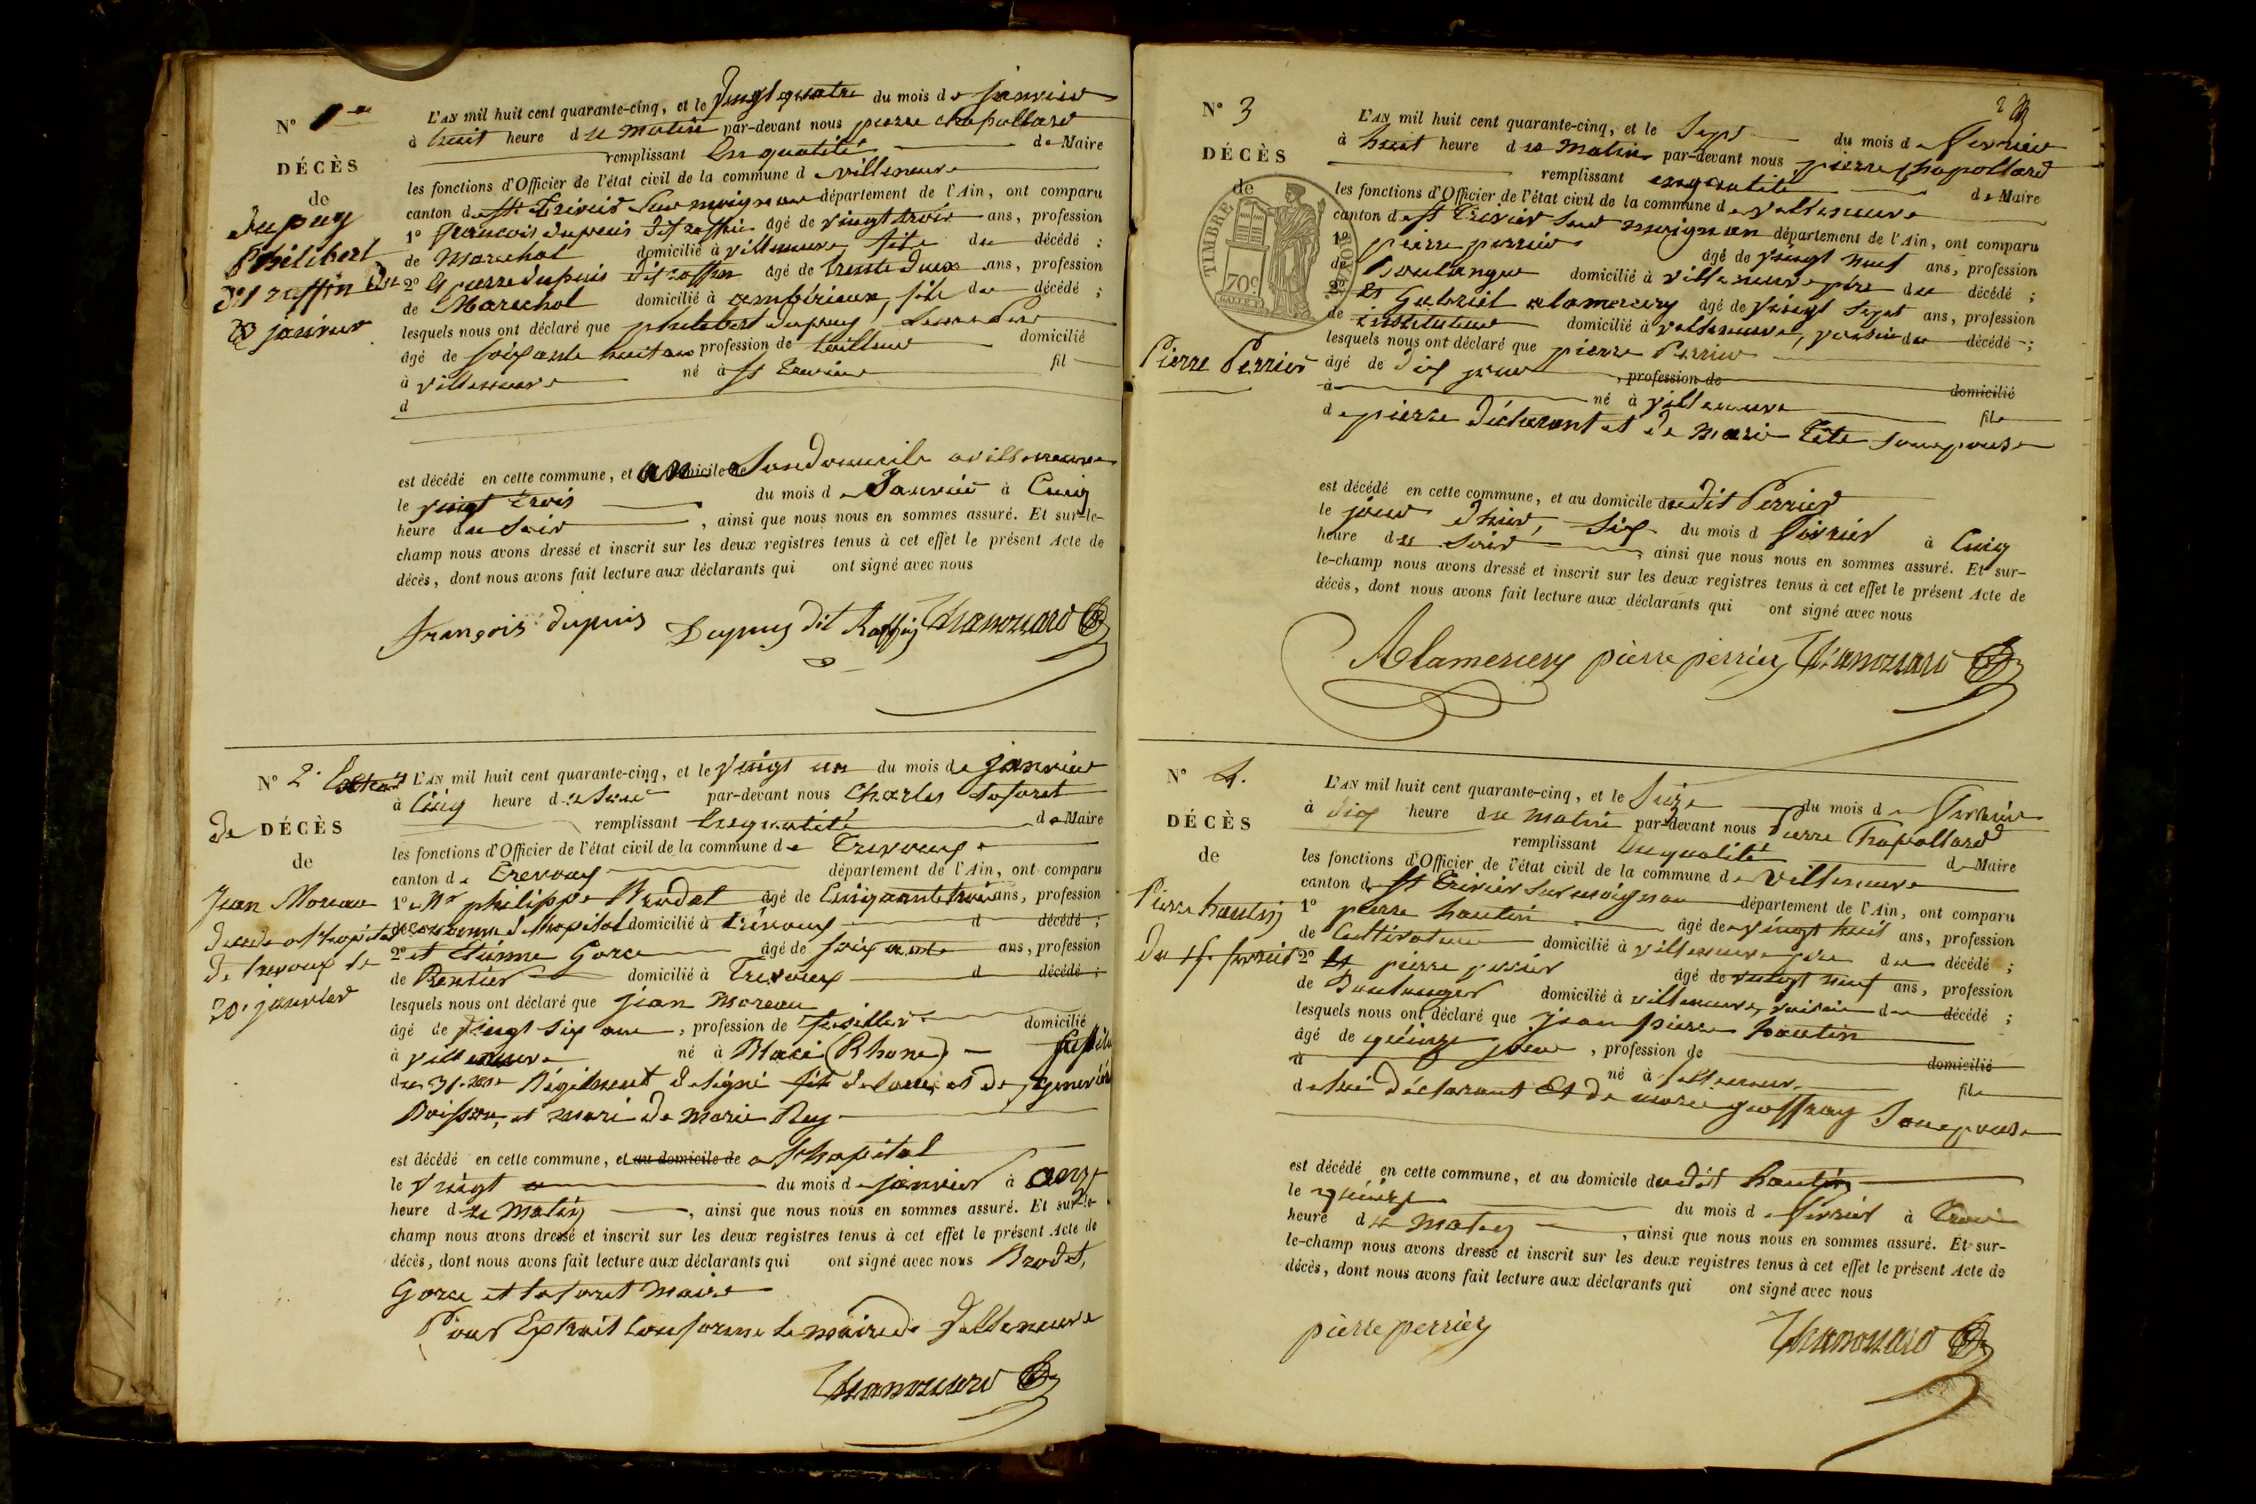 N° 1er
DÉCÈS
de
dupuy
Philibert
dit raffin du
23 janvier
L'AN mil huit cent quarante-cinq, et le vingt quatre du mois de janvier
à huit heure du matin par-devant nous pierre chapollard
remplissant En qualité de Maire
les fonctions d'Officier de l'état civil de la commune de villeneuve
canton de St Trivier Sur moignan département de l'Ain, ont comparu
1° francois dupuis dit raffin âgé de vingt trois ans, profession
de Marechal domicilié à villeneuve, fils du décédé ;
2° Et pierre dupuis dit raffin âgé de trente deux ans, profession
de Marechal domicilié à ambérieux, fils du décédé ;
lesquels nous ont déclaré que philibert dupuy, leur Père
âgé de soixante huit ans profession de tailleur domicilié
à villeneuve né à St Trivier fil
d
est décédé en cette commune, et au domicile de Son domicile a villeneuve
le vingt trois du mois de Janvier à Cinq
heure du Soir , ainsi que nous nous en sommes assuré. Et sur-le-
champ nous avons dressé et inscrit sur les deux registres tenus à cet effet le présent Acte de
décès, dont nous avons fait lecture aux déclarants qui ont signé avec nous
françois dupuis Dupuy dit Raffin
N° 2. Extrait
de DÉCÈS
de
Jean Moreau
décédé a l'hopital
de trevoux le
20 janvier
L'AN mil huit cent quarante-cinq, et le vingt un du mois de janvier
à Cinq heure du Soir par-devant nous Charles
remplissant En qualité de Maire
les fonctions d'Officier de l'état civil de la commune de Trevoux
canton de Trevoux département de l'Ain, ont comparu
1° Mr philippe Brodet âgé de Cinquante trois ans, profession
d'econome d'hopital domicilié à trévoux d décédé ;
2° et Etienne Gorce âgé de soixante ans, profession
de Rentier domicilié à Trevoux d décédé ;
lesquels nous ont déclaré que jean Moreau
âgé de vingt six ans , profession de fusillier domicilié
à villeneuve né à Blacé (Rhone) –
du 31.me Régiment de ligne fils de louis et de genevieve
Buisson, et mari de Marie Rey
est décédé en cette commune, et au domicile de a l'hopital
le vingt du mois de janvier à onze
heure du Matin , ainsi que nous nous en sommes assuré. Et sur-le-
champ nous avons dressé et inscrit sur les deux registres tenus à cet effet le présent Acte de
décès, dont nous avons fait lecture aux déclarants qui ont signé avec nous Brodet,
Gorce et Maire
Pour Extrait Conforme le maire de Villeneuve
2
N° 3
DÉCÈS
de
TIMBRE ROYAL
70c
Pierre Perrier
L'AN mil huit cent quarante-cinq, et le Sept du mois de Fevrier
à huit heure du matin par-devant nous pierre chapollard
remplissant en qualité de Maire
les fonctions d'Officier de l'état civil de la commune de villeneuve
canton de St Trivier Sur moignan département de l'Ain, ont comparu
1° pierre perrier âgé de vingt neuf ans, profession
de Boulanger domicilié à villeneuve père du décédé ;
2° Et Gabriel alamercery âgé de vingt Sept ans, profession
de instituteur domicilié à villeneuve, voisin du décédé ;
lesquels nous ont déclaré que pierre Perrier
âgé de dix jour , profession de domicilié
à né à villeneuve fils
de pierre déclarant et de marie Tête son epouse
est décédé en cette commune, et au domicile dudit Perrier
le jour d'hier, Six du mois de fevrier à Cinq
heure du soir , ainsi que nous nous en sommes assuré. Et sur-
le-champ nous avons dressé et inscrit sur les deux registres tenus à cet effet le présent Acte de
décès, dont nous avons fait lecture aux déclarants qui ont signé avec nous
Alamercery pierre perrier
N° 4.
DÉCÈS
de
Pierre hautin
du 15 fevrier
L'AN mil huit cent quarante-cinq, et le Seize du mois de Fevrier
à dix heure du matin par-devant nous Pierre Chapollard
remplissant En qualité de Maire
les fonctions d'Officier de l'état civil de la commune de Villeneuve
canton de St Trivier Sur moignan département de l'Ain, ont comparu
1° pierre hautin âgé de vingt huit ans, profession
de Cultivateur domicilié à villeneuve père du décédé ;
2° Et pierre perrier âgé de vingt neuf ans, profession
de Boulanger domicilié à villeneuve, voisin du décédé ;
lesquels nous ont déclaré que jean pierre hautin
âgé de quinze jour , profession de domicilié
à né à villeneuve fils
de lui déclarant Et de marie geoffray Son epouse
est décédé en cette commune, et au domicile dudit hautin
le quinze du mois de fevrier à trois
heure du matin , ainsi que nous nous en sommes assuré. Et sur-
le-champ nous avons dressé et inscrit sur les deux registres tenus à cet effet le présent Acte de
décès, dont nous avons fait lecture aux déclarants qui ont signé avec nous
pierre perrier